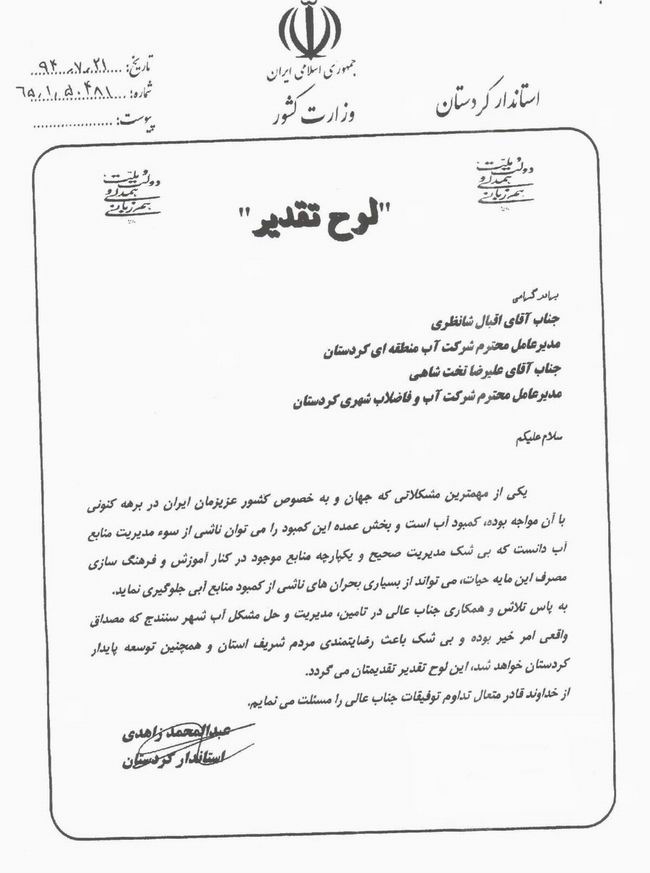 جمهوری اسلامی ایران
وزارت کشور
استاندار کردستان
تاریخ: ۹۴.۷.۲۱
شماره: ۶۵.۱.۵۰۴۸۱
پیوست:
دولت و ملت
همدلی و
همزبانی
دولت و ملت
همدلی و
همزبانی
"لوح تقدیر"
برادر گرامی
جناب آقای اقبال شانظری
مدیرعامل محترم شرکت آب منطقه ای کردستان
جناب آقای علیرضا تخت شاهی
مدیرعامل محترم شرکت آب و فاضلاب شهری کردستان
سلام علیکم
یکی از مهمترین مشکلاتی که جهان و به خصوص کشور عزیزمان ایران در برهه کنونی
با آن مواجه بوده، کمبود آب است و بخش عمده این کمبود را می توان ناشی از سوء مدیریت منابع
آب دانست که بی شک مدیریت صحیح و یکپارچه منابع موجود در کنار آموزش و فرهنگ سازی
مصرف این مایه حیات، می تواند از بسیاری بحران های ناشی از کمبود منابع آبی جلوگیری نماید.
به پاس تلاش و همکاری جناب عالی در تامین، مدیریت و حل مشکل آب شهر سنندج که مصداق
واقعی امر خیر بوده و بی شک باعث رضایتمندی مردم شریف استان و همچنین توسعه پایدار
کردستان خواهد شد، این لوح تقدیر تقدیمتان می گردد.
از خداوند قادر متعال تداوم توفیقات جناب عالی را مسئلت می نمایم.
عبدالمحمد زاهدی
استاندار کردستان